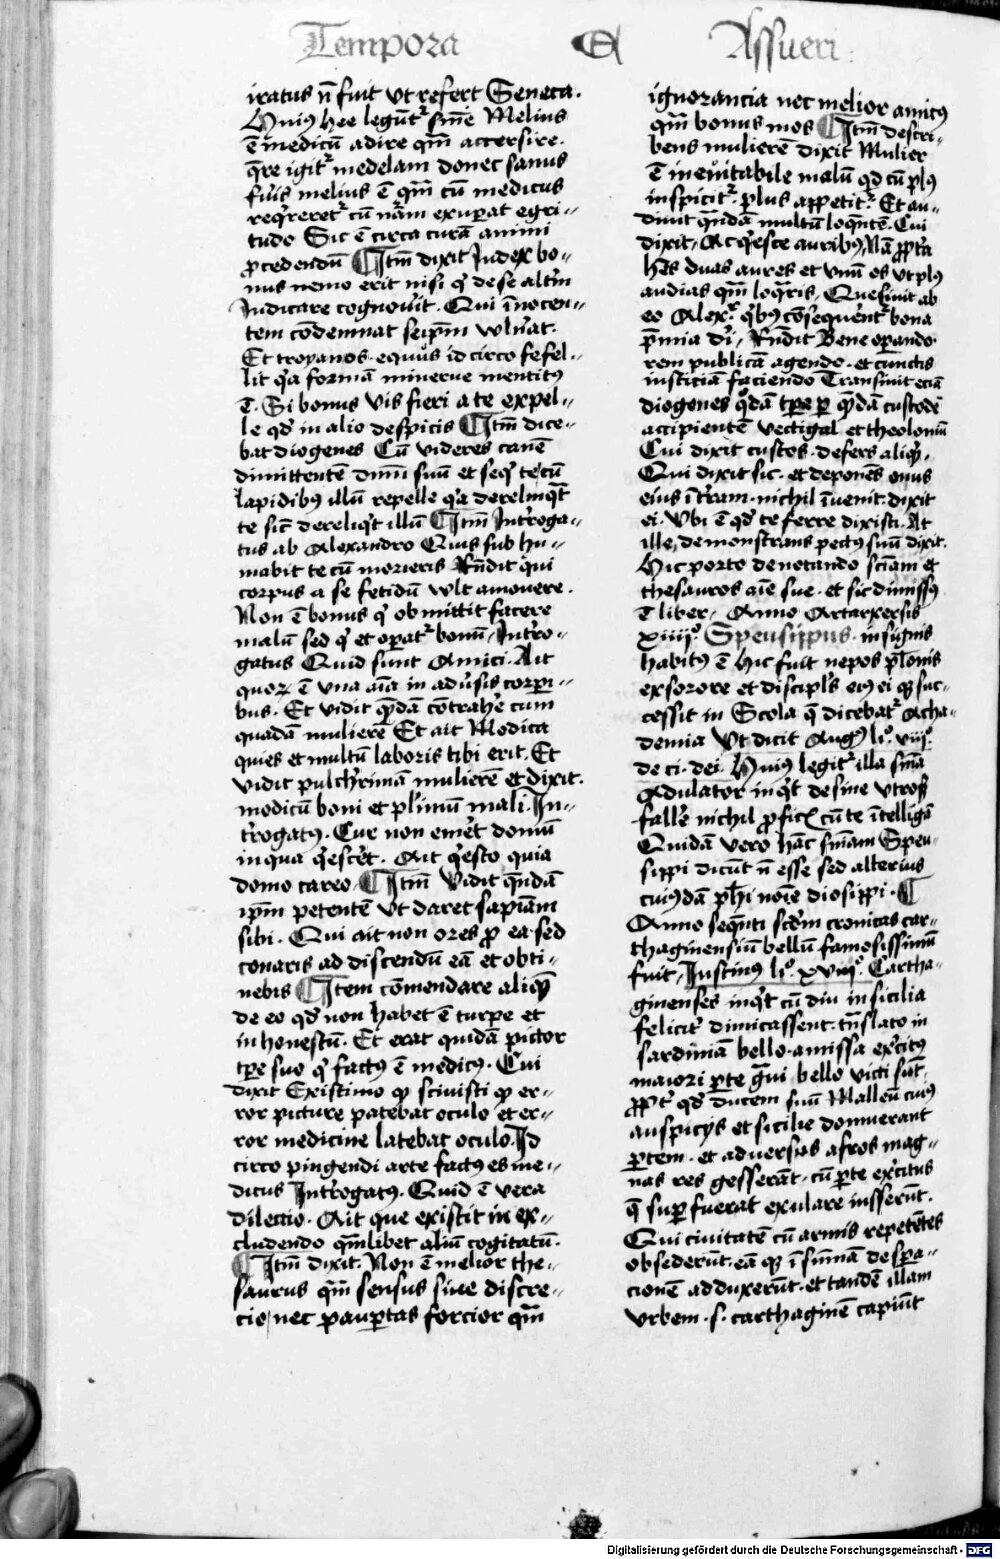 Tempora Et Assueri
iratus n̄ fuit vt refert Seneca.
Huiꝰ hee legūtᷣ sn̄ie Melius
ē medicū adire qm̄ accersire.
q̄re igitᷣ medelam donec sanus
fūis melius ē qm̄ cū medicus
reqͥreretᷣ cū nr̄am exupat egri-
tudo Sic ē circa curā animi
ꝓcedendū ¶ Itm̄ dixit Judex bo-
nus nemo erit nisi qͥ de se altm̄
Judicare cognouit. Qui īnocen-
tem cōdemnat seipm̄ wln̄at.
Et troyanos equus id circo fefel-
lit qͥa formā minerue mentitꝰ
ē. Si bonus vis fieri a te expel-
le qd̄ in alio despicis ¶ Itm̄ dice-
bat diogenes Cū videres canē
dimittentē dnm̄ suū et seqͥ te cū
lapidibꝰ illū repelle qͥa derelinqͥt
te sic̄ dereliqͥt illū ¶ Itm̄ Intˀroga-
tus ab Alexandro Quis sub hu-
mabit te cū morieris Rn̄dit qui
corpus a se fetidū wlt amouere.
Non ē bonus qͥ obmittit facere
malū sed qͥ et opatᷣ bonū. Intˀro-
gatus Quid sunt Amici. Ait
quoꝝ ē vna aīa in adūsis corpi-
bus. Et vidit qͣdā cōtrahē cum
quadā mulierē Et ait Modica
quies et multū laboris tibi erit. Et
vidit pulchˀrimā mulierē et dixit.
modicū boni et plīmū mali. In-
tˀrogatꝰ. Cur non emet domū
in qua qͥescˀet. Ait qͥesto quia
domo careo. ¶ Itm̄ Vidit qn̄dā
ipm̄ petentē vt daret sapīam
sibi. Qui ait non ores ꝓ ea sed
conaris ad discendū eā et obti-
nebis ¶ Item cōmendare aliqͥd
de eo qd̄ non habet ē turpe et
inhonestū. Et erat quidā pictor
tp̄e suo qͥ factꝰ ē medicꝰ. Cui
dixit Existimo ꝙ sciuisti ꝙ er-
ror picture patebat oculo et er-
ror medicine latebat oculo. Id
circo pingendi arte factꝰ es me-
dicus Intˀrogatꝰ. Quid ē vera
dilectio. Ait que existit in ex-
cludendo qm̄libet aliū cogitatū.
¶ Itm̄ dixit. Non ē melior the-
saurus qm̄ sensus siue discre-
cio, nec paupˀtas forcior qm̄
ignorancia nec melior amicꝰ
qm̄ bonus mos ¶ Itm̄ descri-
bens mulierē dixit Mulier
ē ineuitabile malū qd̄ cū plꝰ
inspicitᷣ. plus appetitᷣ. Et au-
diuit qn̄dā multū loqn̄tē. Cui
dixit, Acqͥesce auribꝰ, Nā ꝓpt̄a
hēs duas aures et vnū os vt plꝰ
audias qm̄ loqͣris, Quesiuit ab
eo Alexᷣ. qͥbꝰ cōsequēnt̄ bona
p̄mia di, Rn̄dit Bene opando
rem publicā agendo. et cunctis
iusticiā faciendo Transiuit eciā
diogenes qͦdā tp̄e p qn̄dā custodē
accipientē vectigal et theoloniū
Cui dixit custos. defers aliqͥ,
Qui dixit sic. et deponēs onus
eius ī tˀram. nichil īuenit. dixit
ei. Vbi ē qd̄ te ferre dixisti. At
ille, demonstrans pectꝰ suū dixit.
Hic porto denotando sciam et
thesauros aīe sue. et sic dimissꝰ
ē liber, Anno Artarxersis
xiiijᵒ. Speusippus. insignis
habitꝰ ē Hic fuit nepos platonis
ex sorore et discipls̄ eiꝰ ei qꝫ suc-
cessit in Scola q̄ dicebatᷣ Acha-
demia Vt dicit Augꝰ liᵒ. viijᵒ.
de ci. dei. Huiꝰ legitᷣ illa sn̄ia
Adulator inqͥt desine vtrosqꝫ
fallē nichil ꝓficis cū te ītelligā
Quidā vero hāc sn̄iam Speu-
sippi dicūt n̄ esse sed alterius
cuiꝰdā ph̄i noīe diosippi. ¶
Anno seqn̄ti scdm̄ cronicas car-
thaginensiū bellū famosissimū
fuit, Justinꝰ liᵒ. xviijᵒ. Cartha-
ginenses inqͥt cū diu in sicilia
felicitˀ dimicassent. tn̄slato in
sardiniā bello. amissa exˀcitꝰ
maiori pˀte gͣui bello victi sūt.
ꝓpt̄ qd̄ ducem suū Malleū cuiꝰ
auspicijs et sicilie domuerant
pˀtem. et adversus afros mag-
nas res gesserāt. cū pˀte exˀcitus
q̄ supˀfuerat exulare iusserūt.
Qui ciuitatē cū armis repetētes
obsederūt. eā qꝫ ī sūmā despa-
cionē adduxerūt. et tandē illam
vrbem. s. carthaginē capiūt
Digitalisierung gefördert durch die Deutsche Forschungsgemeinschaft - DFG